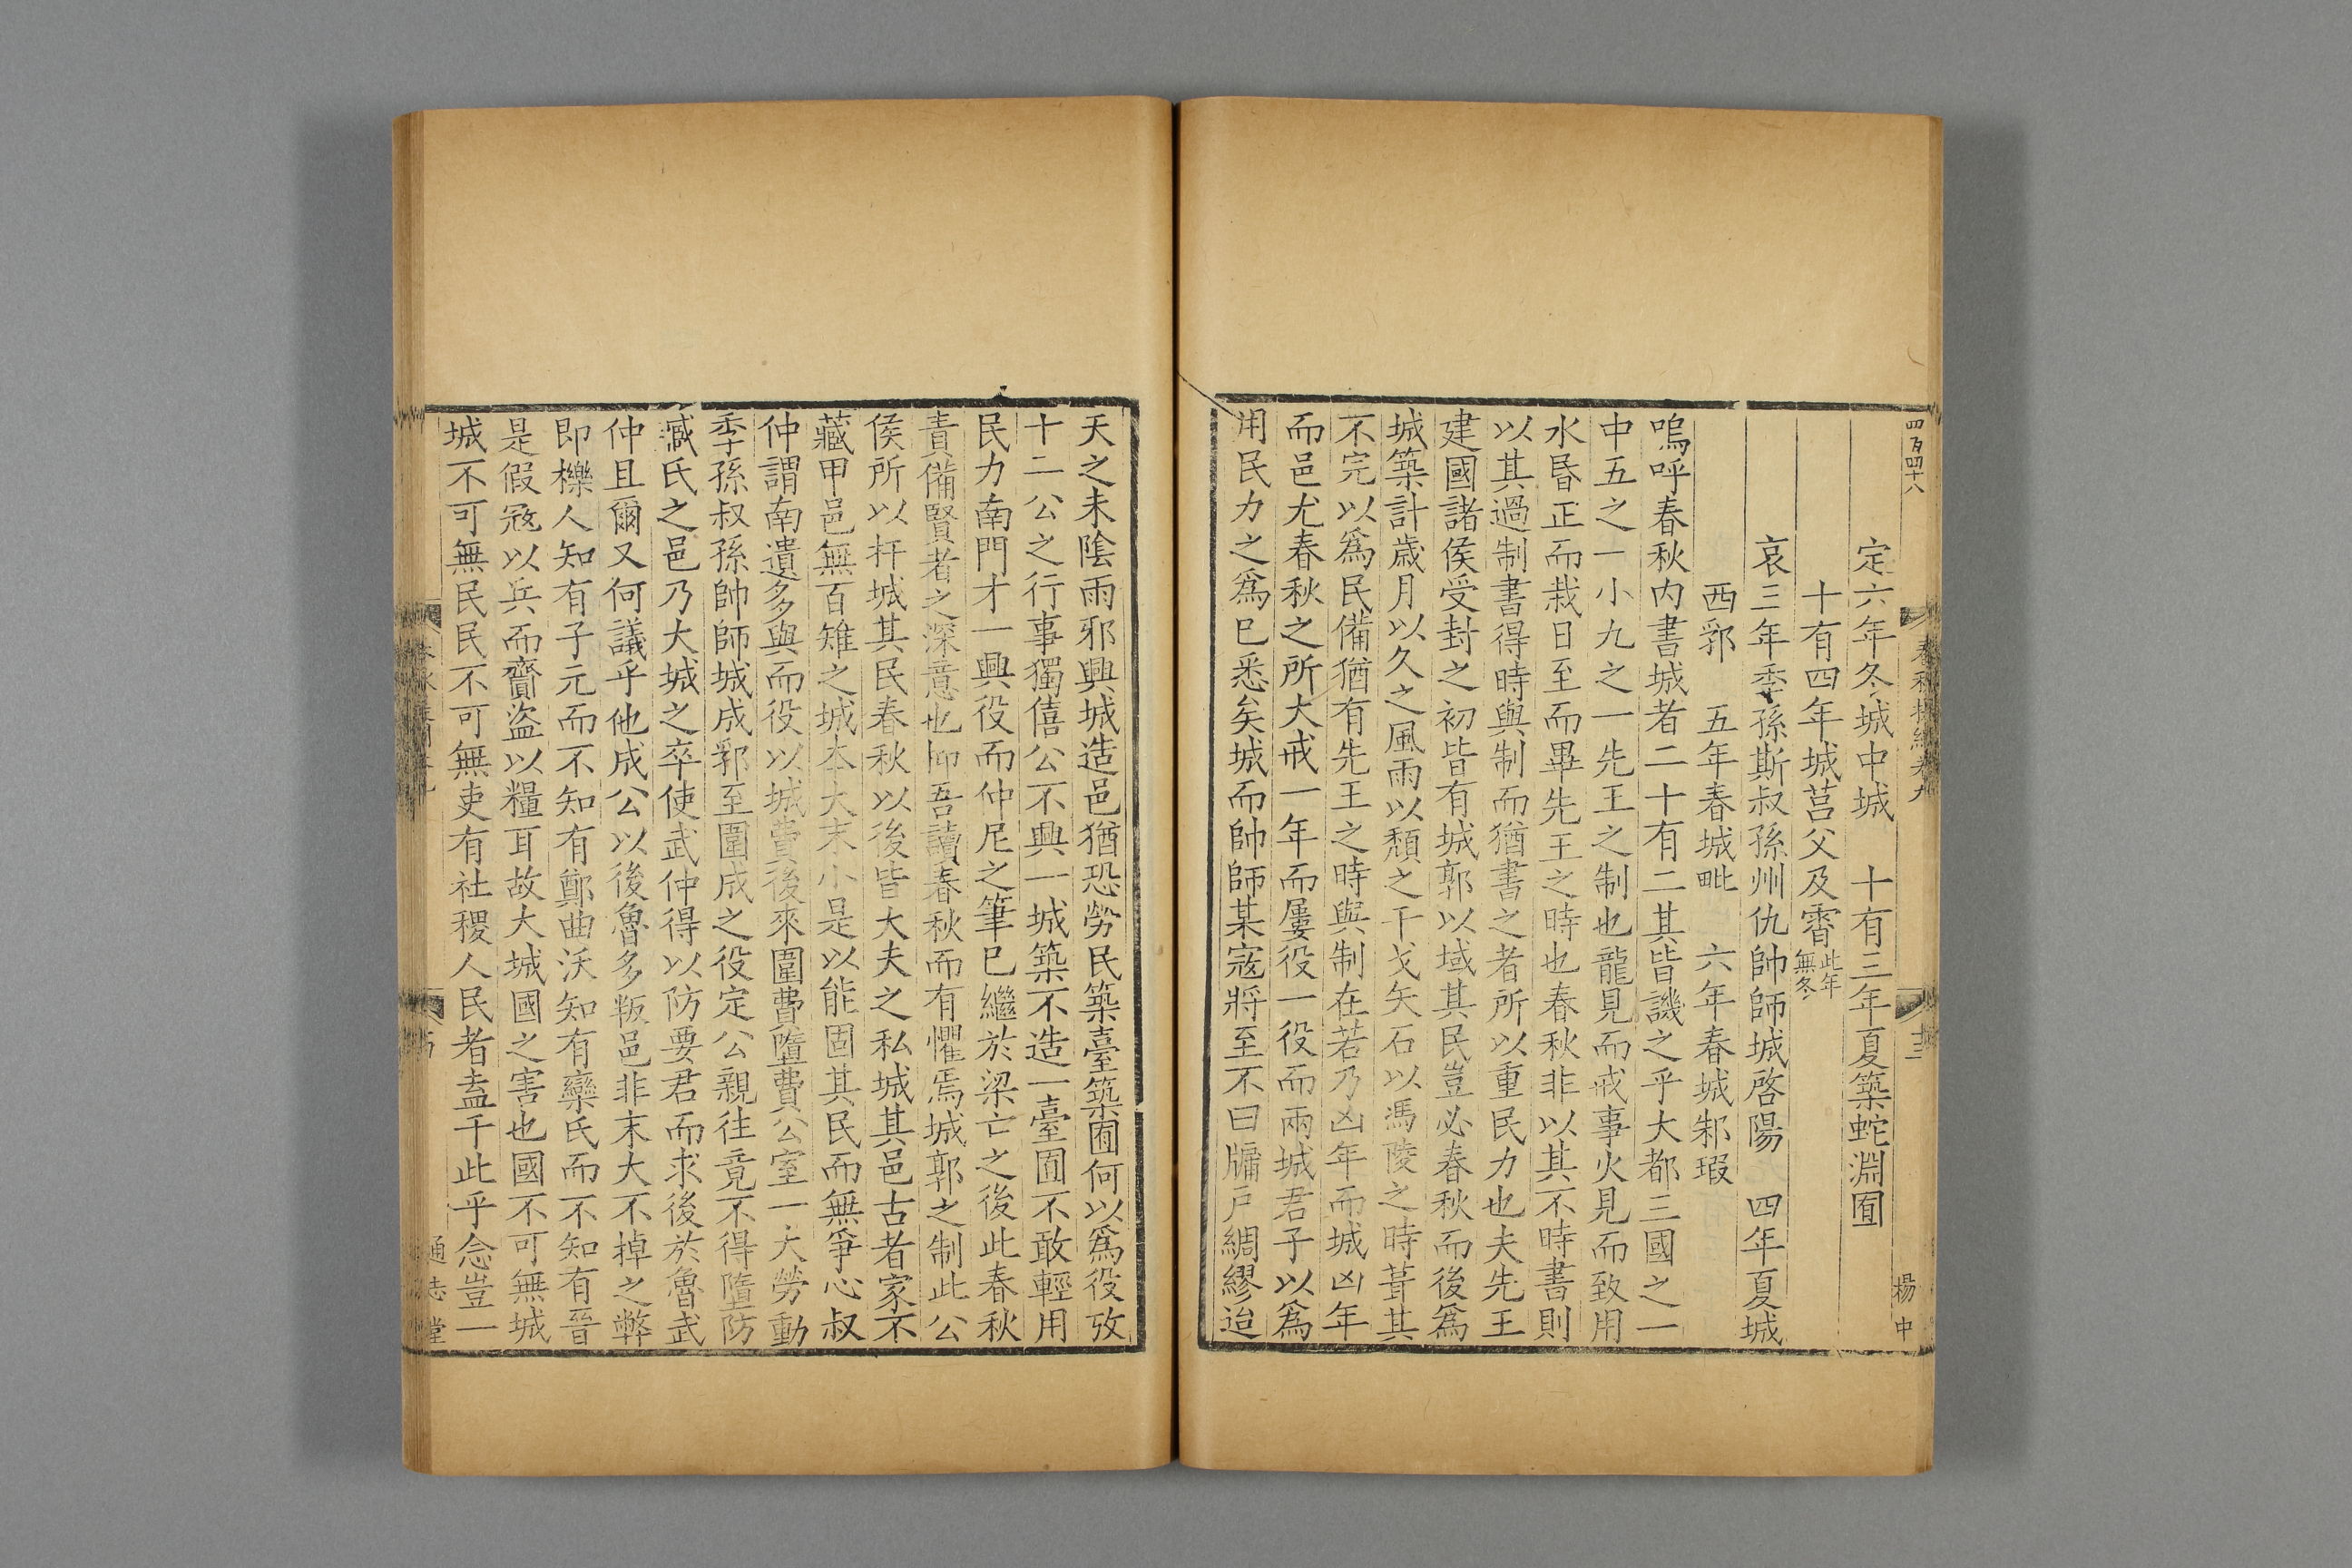 四百四十八
定六年冬城中城　十有三年夏築蛇淵囿
十有四年城莒父及霄此年無冬
哀三年季孫斯叔孫州仇帥師城啓陽　四年夏城
西郛　五年春城毗　六年春城邾瑕
嗚呼春秋内書城者二十有二其皆譏之乎大都三國之一
中五之一小九之一先王之制也龍見而戒事火見而致用
水昏正而栽日至而畢先王之時也春秋非以其不時書則
以其過制書得時與制而猶書之者所以重民力也夫先王
建國諸侯受封之初皆有城郭以域其民豈必春秋而後爲
城築計歲月以久之風雨以頽之干戈矢石以馮陵之時葺其
不完以爲民備猶有先王之時與制在若乃凶年而城凶年
而邑尤春秋之所大戒一年而屢役一役而兩城君子以爲
用民力之爲已悉矣城而帥師某寇將至不曰牖戶綢繆迨
楊中
天之未陰雨邪興城造邑猶恐勞民築臺築囿何以爲役攷
十二公之行事獨僖公不興一城築不造一臺囿不敢輕用
民力南門才一興役而仲尼之筆已繼於梁亡之後此春秋
責備賢者之深意也抑吾讀春秋而有懼焉城郭之制此公
侯所以扞城其民春秋以後皆大夫之私城其邑古者家不
藏甲邑無百雉之城本大末小是以能固其民而無爭心叔
仲謂南遺多與而役以城費後來圍費墮費公室一大勞動
季孫叔孫帥師城成郛至圍成之役定公親往竟不得墮防
臧氏之邑乃大城之卒使武仲得以防要君而求後於魯武
仲且爾又何議乎他成公以後魯多叛邑非末大不掉之弊
即櫟人知有子元而不知有鄭曲沃知有欒氏而不知有晉
是假寇以兵而齎盜以糧耳故大城國之害也國不可無城
城不可無民民不可無吏有社稷人民者盍于此乎念豈一
通志堂